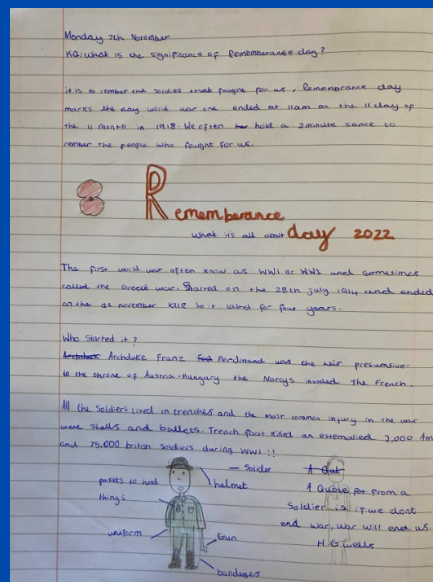 Monday 7th November
KQ: What is the significance of Rememberance day?
it is to rember the soldies that fought for us, Rememberance day
marks the day world war one ended at 11am on the 11 day of
the 11 month in 1918. We often hold a 2minute to
rember the people who fought for us.
Rememberance
what it's all about day 2022
The first world war often know as WW1 or WWI and sometimes
called the war. Started on the 28th July 1914 and ended
on the november so it lasted for four years.
Who Started it?
Archduke Franz Ferdinand was the heir presumtive
to the throne of Austria-Hungary the invaded The French.
All the Soldiers lived in trenches and the most common injury in the war
were Shells and bullets. Trench foot killed an 2,000
and 75,000 british soldiers during WW1!!
Soider
helmet
to hold
things
uniform
Gun
bandeges
A Quote from a
Soldier is if we dont
end war, war will end us.
H.G wells